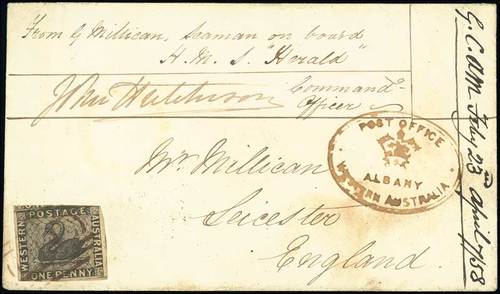 From G Millican, Seaman on board
H. M. S. "Herald"
John Hutchison Command^g
Officer
Mr. Millican
Leicester
England.
POST OFFICE
ALBANY
WESTERN AUSTRALIA
POSTAGE
WESTERN
AUSTRALIA
ONE PENNY
April 1858